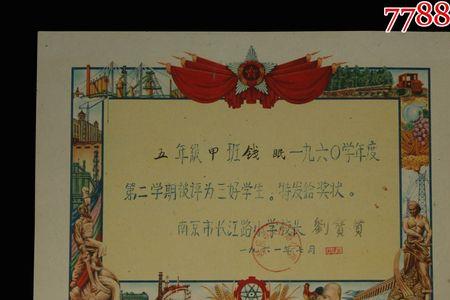 7788
五年级甲班钱眠一九六〇学年度
第二学期被评为三好学生。特发给奖状。
南京市长江路小学校长
一九六一年七月